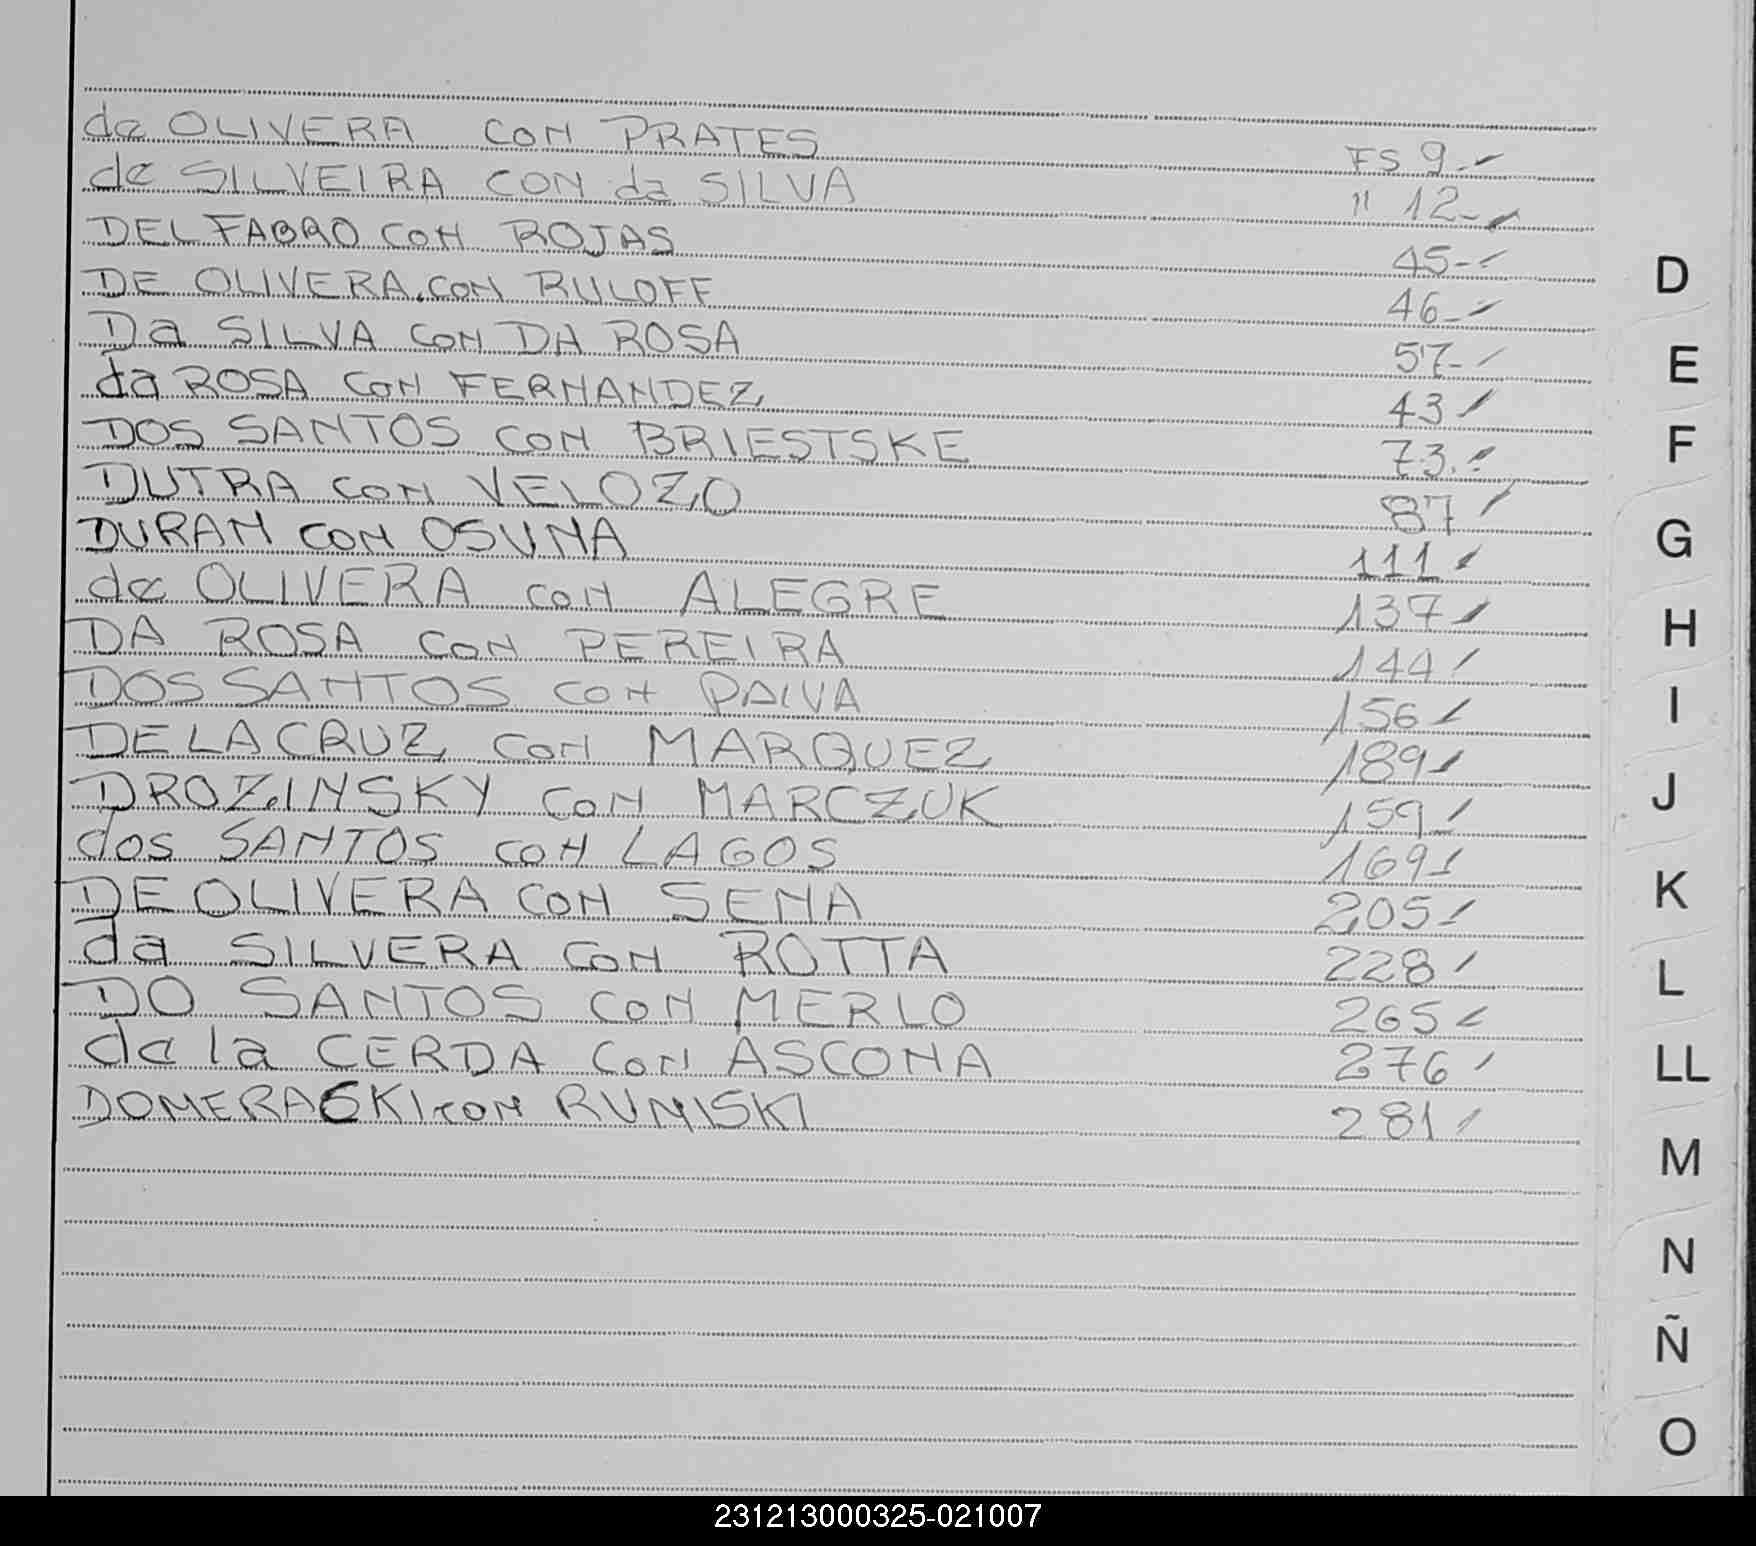 de OLIVERA CON PRATES FS 9.-
de SILVEIRA CON da SILVA " 12.-
DEL FABRO CON ROJAS 45.-
DE OLIVERA CON RULOFF 46.-
Da SILVA CON DA ROSA 57.-
da ROSA CON FERNANDEZ 43-
DOS SANTOS CON BRIESTSKE 73.-
DUTRA CON VELOZO 87-
DURAN CON OSUNA 111-
de OLIVERA CON ALEGRE 137-
DA ROSA CON PEREIRA 144-
DOS SANTOS CON PAIVA 156-
DE LA CRUZ CON MARQUEZ 189-
DROZINSKY CON MARCZUK 159-
dos SANTOS CON LAGOS 169-
DE OLIVERA CON SENA 205-
da SILVERA CON ROTTA 228-
DO SANTOS CON MERLO 265-
de la CERDA CON ASCONA 276-
DOMERACKI CON RUMISKI 281-
D
E
F
G
H
I
J
K
L
LL
M
N
Ñ
O
231213000325-021007